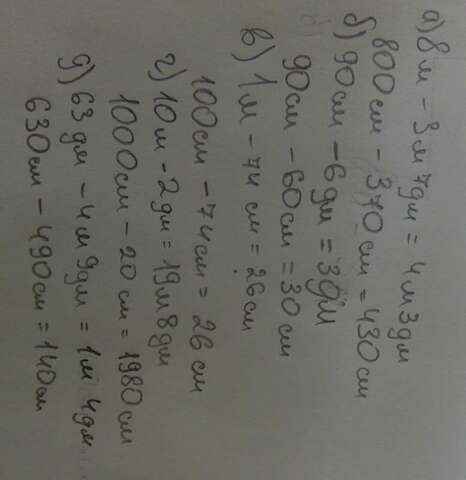 а) 8 м - 3м 7дм = 4м 3дм
800см - 370см = 430см
б) 90см - 6дм = 3дм
90см - 60см = 30см
в) 1м - 74см = 26см
100см - 74см = 26см
г) 10м - 2дм = 19м 8дм
1000см - 20см = 1980см
д) 63дм - 4м 9дм = 1м 4дм
630см - 490см = 140см